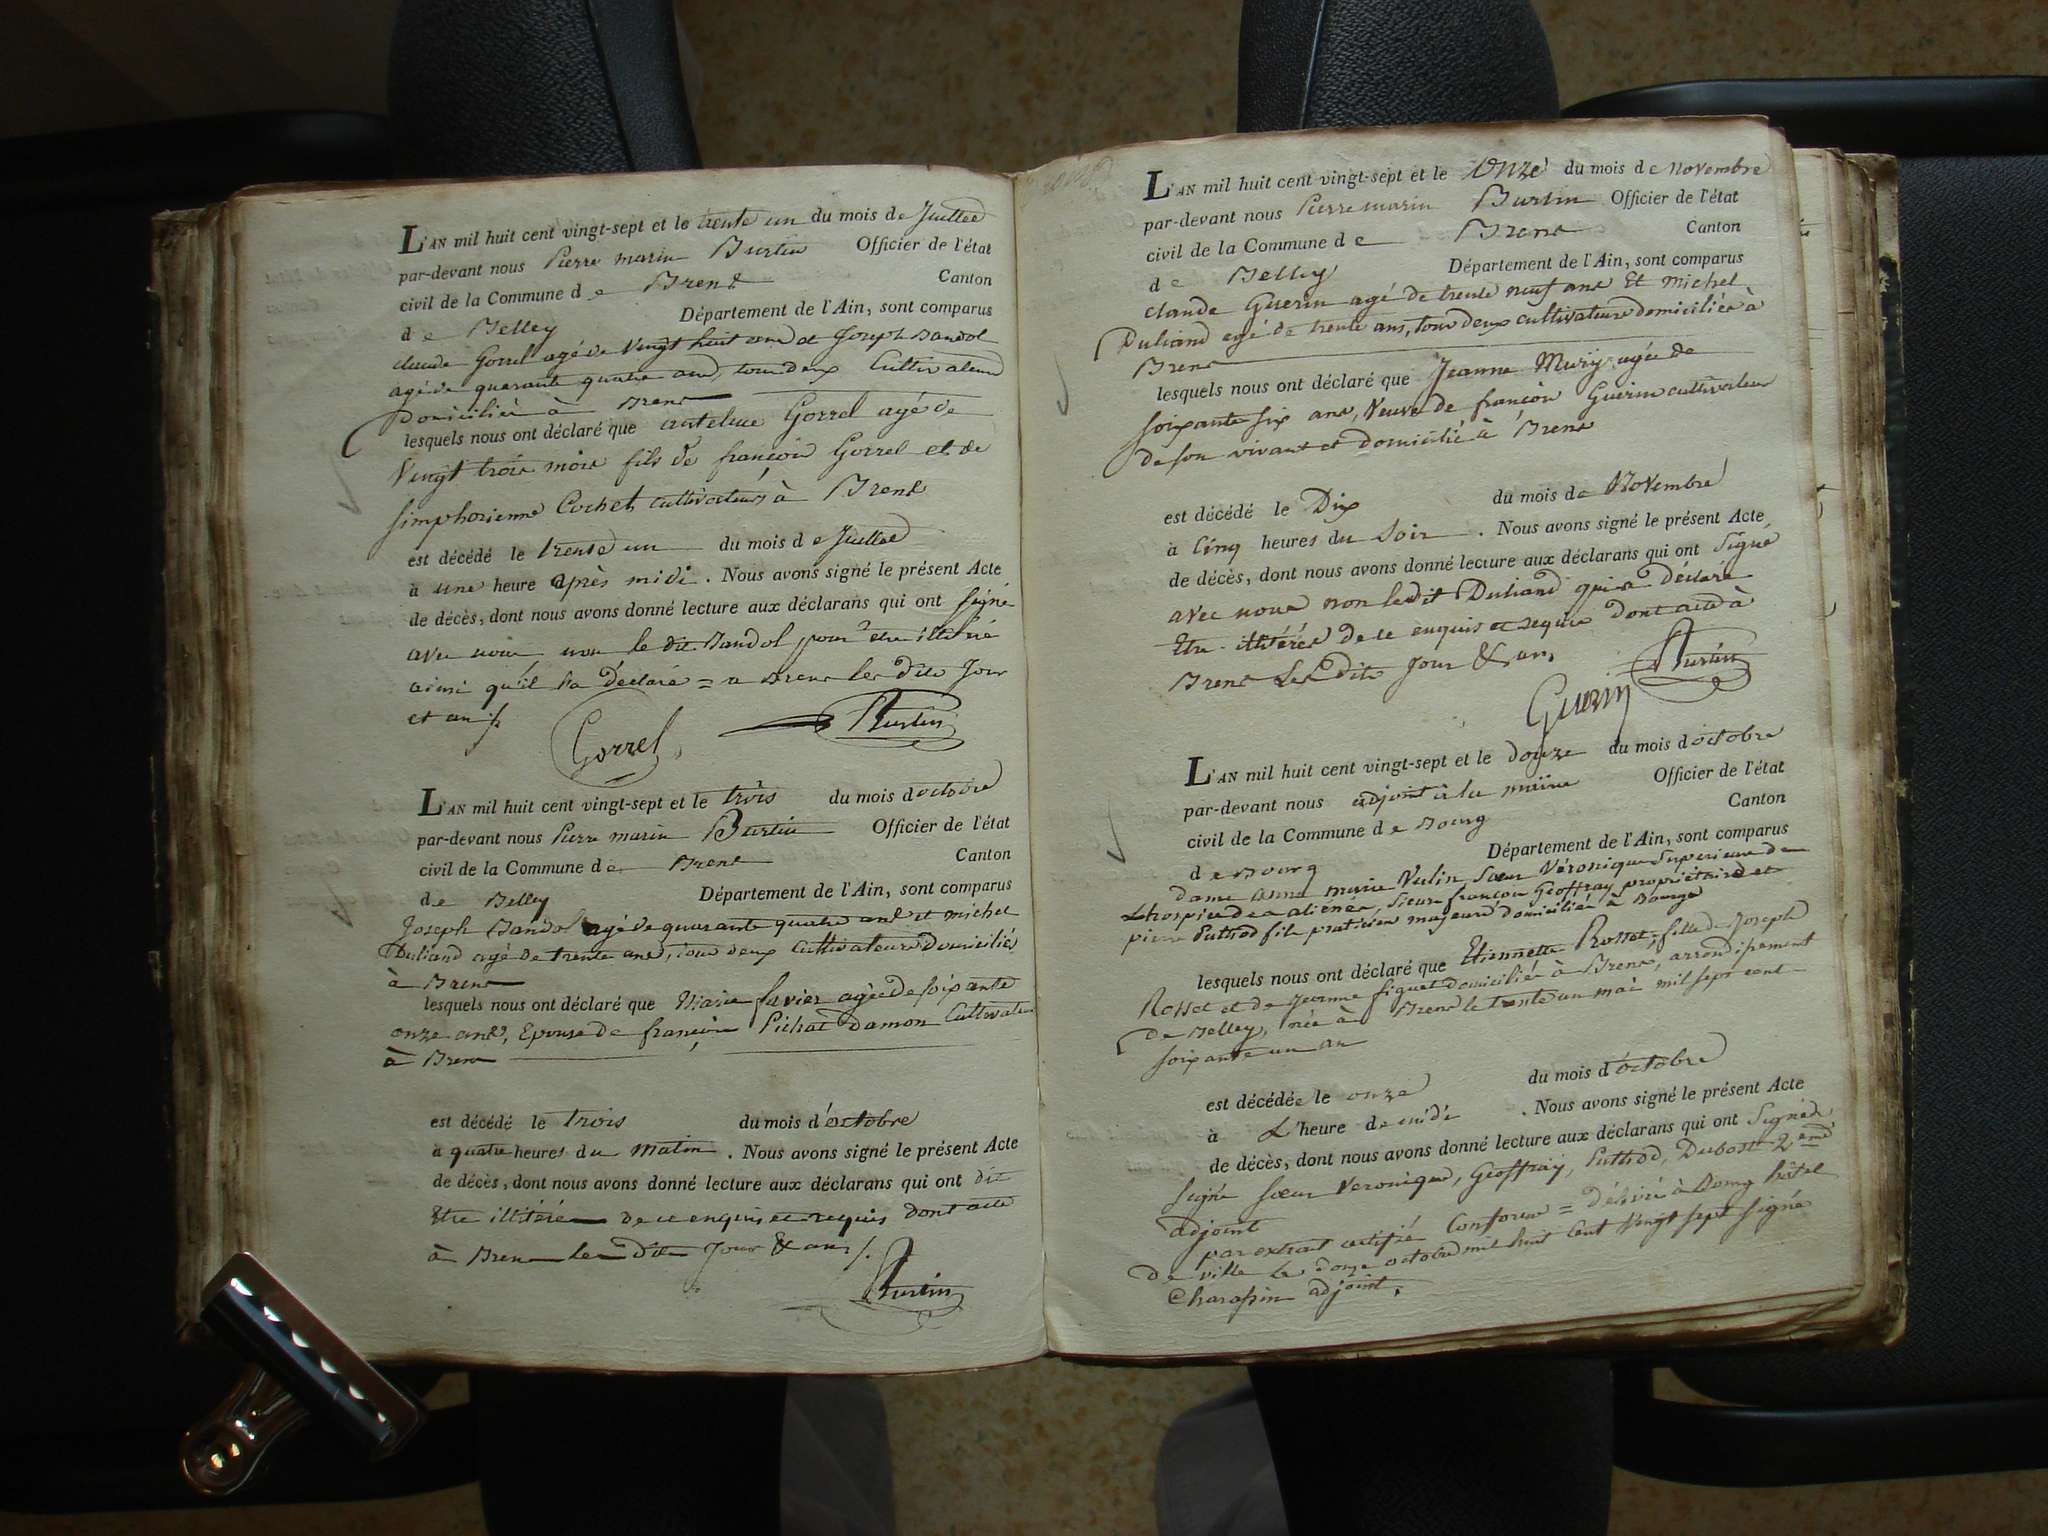 L'AN mil huit cent vingt-sept et le trente un du mois de Juillet
par-devant nous Pierre marin Burtin Officier de l'état
civil de la Commune de Brens Canton
de Belley Département de l'Ain, sont comparus
claude Gorrel agé de vingt huit ans et Joseph Bandol
agé de quarante quatre ans, tous deux Cultivateurs
Domiciliés à Brens
lesquels nous ont déclaré que antelme Gorrel agé de
Vingt trois mois fils de françois Gorrel et de
simphorienne Cochet cultivateurs à Brens
est décédé le trente un du mois de Juillet
à une heure après midi. Nous avons signé le présent Acte
de décès, dont nous avons donné lecture aux déclarans qui ont signé
avec nous non le dit Bandol pour être illitéré
ainsi qu'il l'a déclaré = a Brens les dits Jour
et an
Gorrel Burtin
L'AN mil huit cent vingt-sept et le trois du mois d'octobre
par-devant nous Pierre marin Burtin Officier de l'état
civil de la Commune de Brens Canton
de Belley Département de l'Ain, sont comparus
Joseph Bandol agé de quarante quatre ans et michel
Duliand agé de trente ans, tous deux Cultivateurs Domiciliés
à Brens
lesquels nous ont déclaré que Marie favier agée de soixante
onze ans, Epouse de françois Pichat Damon Cultivateur
à Brens
est décédé le trois du mois d'octobre
à quatre heures du matin. Nous avons signé le présent Acte
de décès, dont nous avons donné lecture aux déclarans qui ont dit
Etre illitérés de ce enquis et requis dont acte
à Brens les dits Jour & an
Burtin
L'AN mil huit cent vingt-sept et le onze du mois de novembre
par-devant nous Pierre marin Burtin Officier de l'état
civil de la Commune de Brens Canton
de Belley Département de l'Ain, sont comparus
claude Guerin agé de trente neuf ans Et michel
Duliand agé de trente ans, tous deux cultivateurs domiciliés à
Brens
lesquels nous ont déclaré que Jeanne Mury agée de
soixante six ans, Veuve de françois Guerin cultivateur
de son vivant et domicilié à Brens
est décédé le Dix du mois de Novembre
à Cinq heures du Soir. Nous avons signé le présent Acte
de décès, dont nous avons donné lecture aux déclarans qui ont Signé
avec nous non ledit Duliand qui a déclaré
Etre illitéré de ce enquis et requis dont acte à
Brens Les dits Jour & an
Burtin
Guerin
L'AN mil huit cent vingt-sept et le douze du mois d'octobre
par-devant nous adjoint à la mairie Officier de l'état
civil de la Commune de Bourg Canton
de Bourg Département de l'Ain, sont comparus
dame anne marie Vulin Sœur Véronique Supérieure de
L'hospice des aliénés, Sieurs françois Geoffray propriétaire et
pierre Puthod fils praticien majeurs domiciliés à Bourg
lesquels nous ont déclaré que Etiennette Rosset, fille de Joseph
Rosset et de Jeanne figuet domiciliés à Brens, arrondissement
de Belley, née à Brens le trente un mai mil sept cent
soixante un an
est décédée le onze du mois d'octobre
à L'heure de midi. Nous avons signé le présent Acte
de décès, dont nous avons donné lecture aux déclarans qui ont Signé
Signé sœur Veronique, Geoffray, Puthod, Dubost 2eme
adjoint
par extrait certifié Conforme = délivré à Bourg hôtel
de ville Le douze octobre mil huit Cent Vingt sept signé
Charassin adjoint.